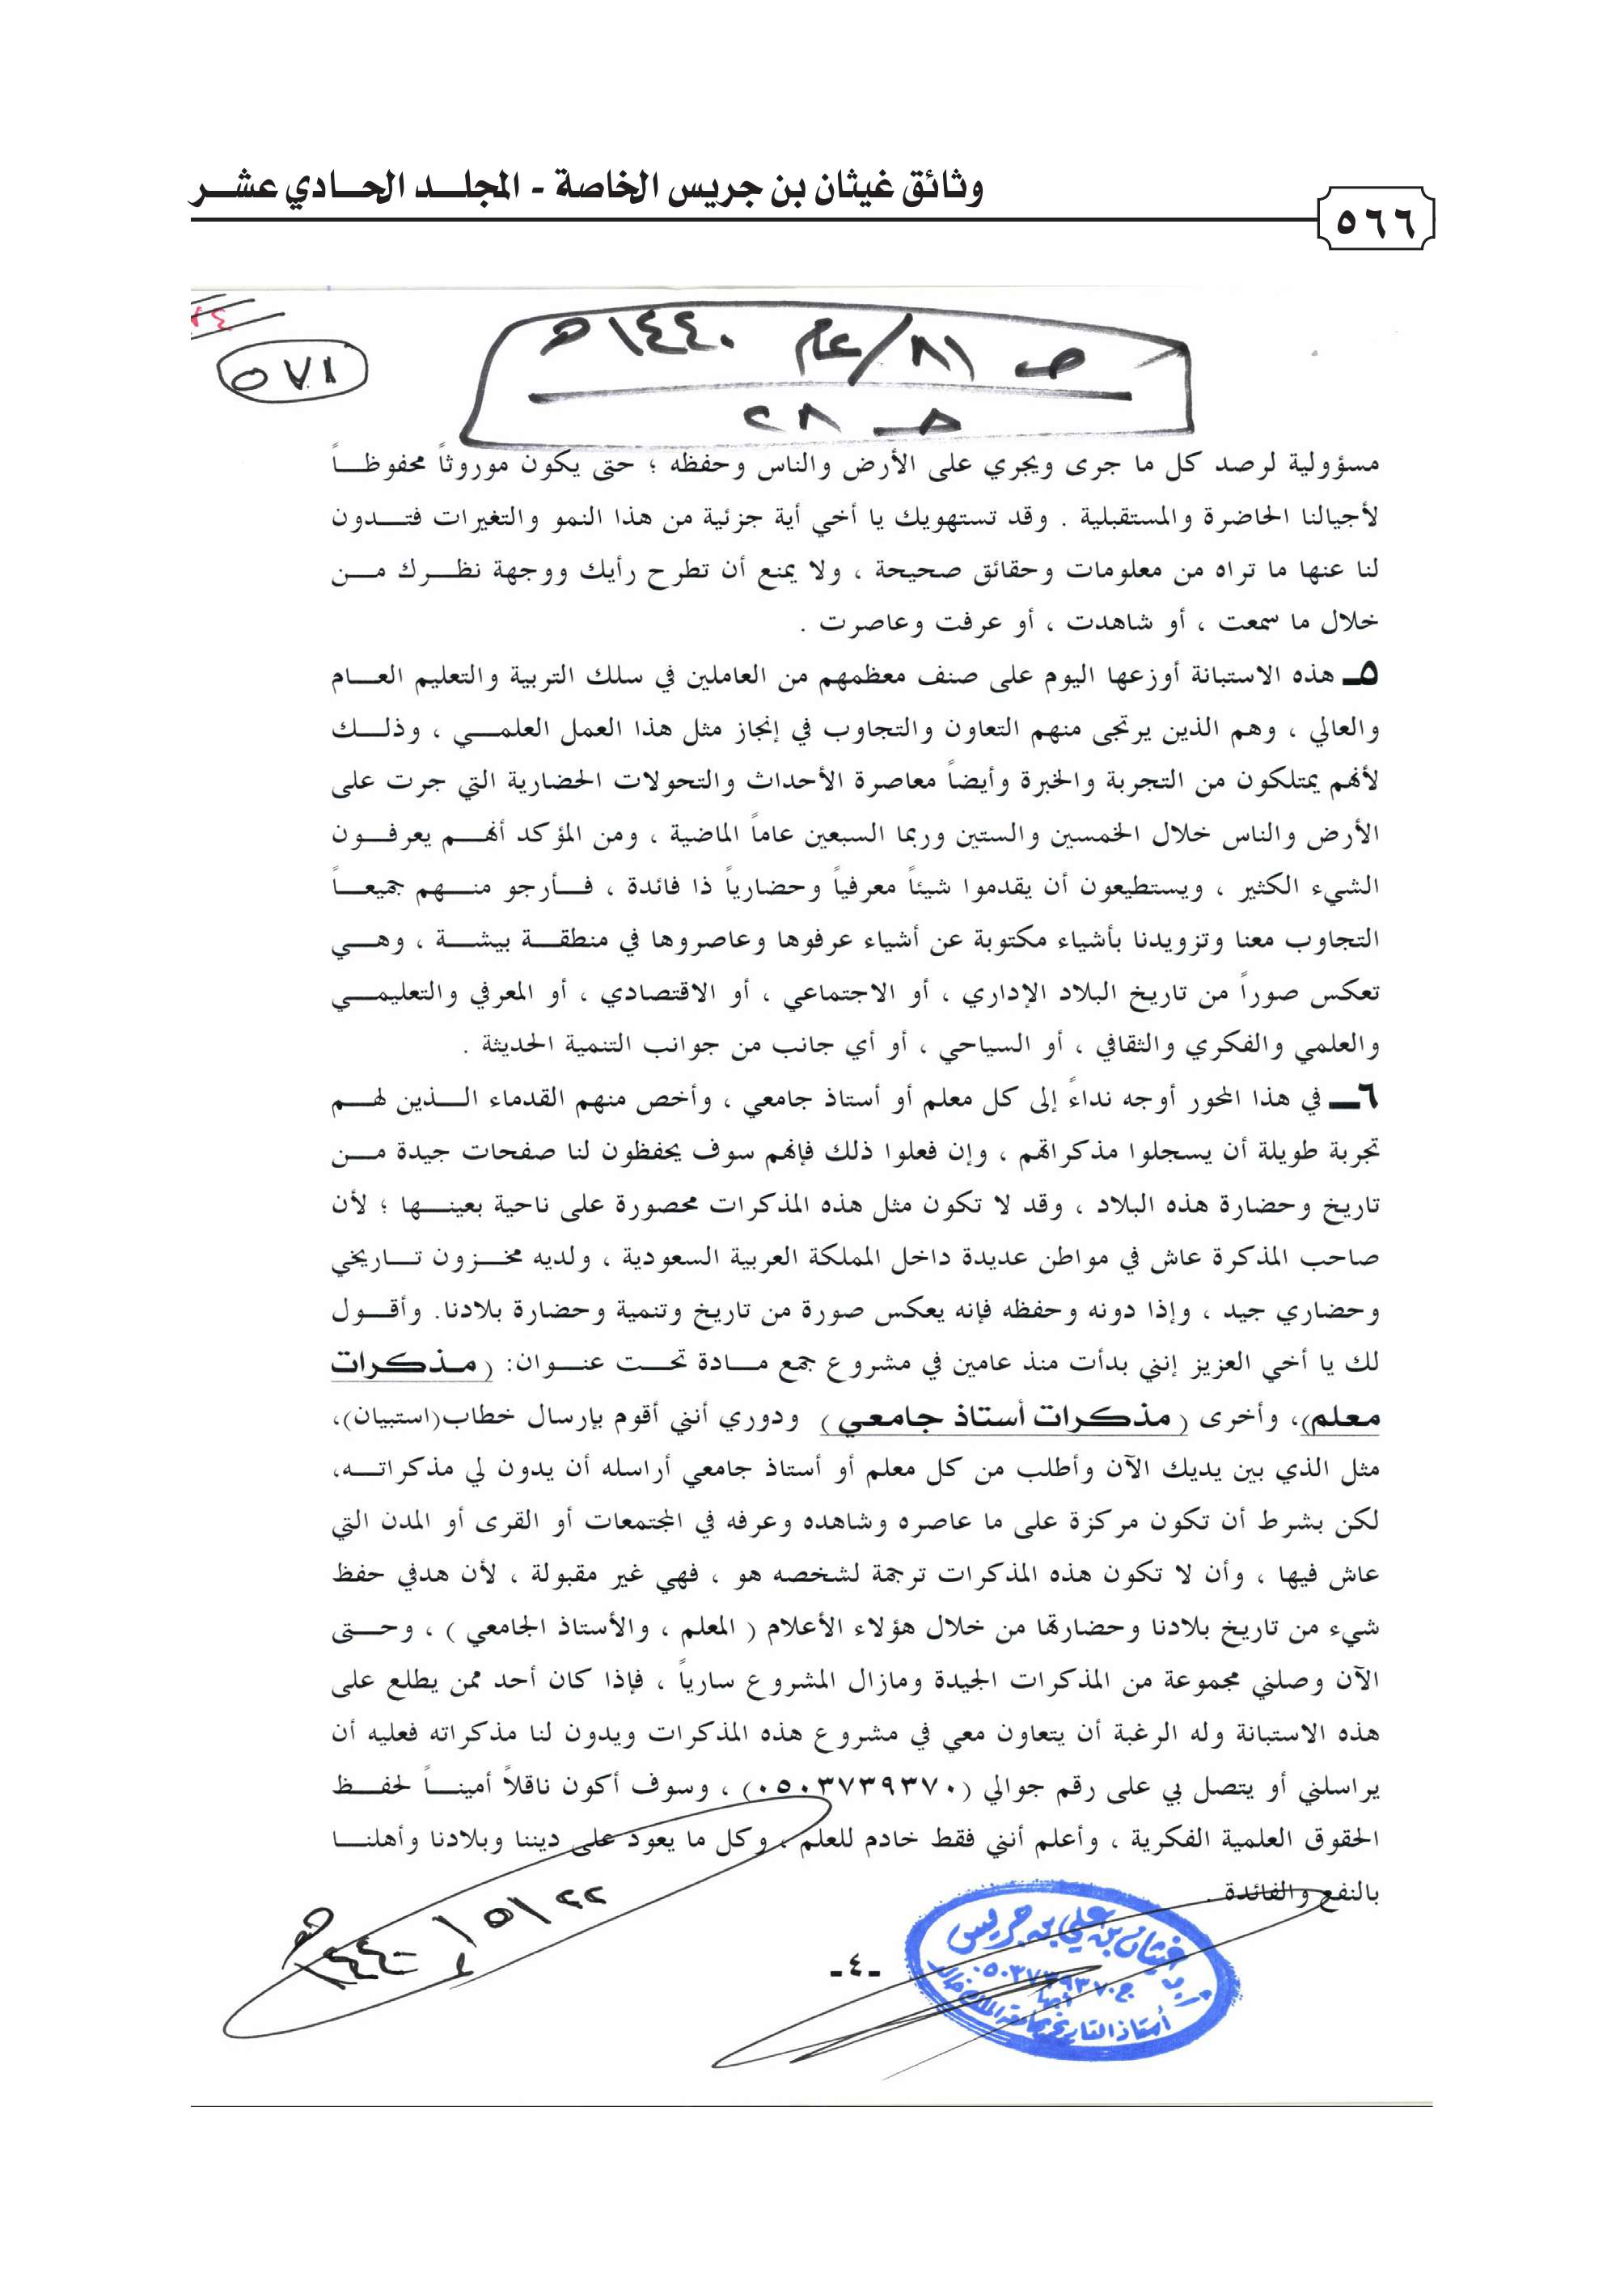 وثائق غيثان بن جريس الخاصة - المجلد الحادي عشر
٥٦٦
٥٧١
ص ٨١/عام ١٤٤٠هـ
مسؤولية لرصد كل ما جرى ويجري على الأرض والناس وحفظه ؛ حتى يكون موروثاً محفوظاً
لأجيالنا الحاضرة والمستقبلية . وقد تستهويك يا أخي أية جزئية من هذا النمو والتغيرات فتدون
لنا عنها ما تراه من معلومات وحقائق صحيحة ، ولا يمنع أن تطرح رأيك ووجهة نظرك من
خلال ما سمعت ، أو شاهدت ، أو عرفت وعاصرت .
٥ـ هذه الاستبانة أوزعها اليوم على صنف معظمهم من العاملين في سلك التربية والتعليم العام
والعالي ، وهم الذين يرتجى منهم التعاون والتجاوب في إنجاز مثل هذا العمل العلمي ، وذلك
لأنهم يمتلكون من التجربة والخبرة وأيضاً معاصرة الأحداث والتحولات الحضارية التي جرت على
الأرض والناس خلال الخمسين والستين وربما السبعين عاماً الماضية ، ومن المؤكد أنهم يعرفون
الشيء الكثير ، ويستطيعون أن يقدموا شيئاً معرفياً وحضارياً ذا فائدة ، فأرجو منهم جميعاً
التجاوب معنا وتزويدنا بأشياء مكتوبة عن أشياء عرفوها وعاصروها في منطقة بيشة ، وهي
تعكس صوراً من تاريخ البلاد الإداري ، أو الاجتماعي ، أو الاقتصادي ، أو المعرفي والتعليمي
والعلمي والفكري والثقافي ، أو السياحي ، أو أي جانب من جوانب التنمية الحديثة .
٦ـ في هذا المحور أوجه نداءً إلى كل معلم أو أستاذ جامعي ، وأخص منهم القدماء الذين لهم
تجربة طويلة أن يسجلوا مذكراتهم ، وإن فعلوا ذلك فإنهم سوف يحفظون لنا صفحات جيدة من
تاريخ وحضارة هذه البلاد ، وقد لا تكون مثل هذه المذكرات محصورة على ناحية بعينها ؛ لأن
صاحب المذكرة عاش في مواطن عديدة داخل المملكة العربية السعودية ، ولديه مخزون تاريخي
وحضاري جيد ، وإذا دونه وحفظه فإنه يعكس صورة من تاريخ وتنمية وحضارة بلادنا. وأقول
لك يا أخي العزيز إنني بدأت منذ عامين في مشروع جمع مادة تحت عنوان: (مذكرات
معلم)، وأخرى (مذكرات أستاذ جامعي) ودوري أنني أقوم بإرسال خطاب(استبيان)،
مثل الذي بين يديك الآن وأطلب من كل معلم أو أستاذ جامعي أراسله أن يدون لي مذكراته،
لكن بشرط أن تكون مركزة على ما عاصره وشاهده وعرفه في المجتمعات أو القرى أو المدن التي
عاش فيها ، وأن لا تكون هذه المذكرات ترجمة لشخصه هو ، فهي غير مقبولة ، لأن هدفي حفظ
شيء من تاريخ بلادنا وحضارتها من خلال هؤلاء الأعلام ( المعلم ، والأستاذ الجامعي ) ، وحتى
الآن وصلني مجموعة من المذكرات الجيدة ومازال المشروع سارياً ، فإذا كان أحد ممن يطلع على
هذه الاستبانة وله الرغبة أن يتعاون معي في مشروع هذه المذكرات ويدون لنا مذكراته فعليه أن
يراسلني أو يتصل بي على رقم جوالي (٠٥٠٣٧٣٩٣٧٠) ، وسوف أكون ناقلاً أميناً لحفظ
الحقوق العلمية الفكرية ، وأعلم أنني فقط خادم للعلم ، وكل ما يعود على ديننا وبلادنا وأهلنا
بالنفع والفائدة .
٢٢/٥/١٤٤٠هـ
ـ ٤ ـ
غيثان بن علي بن جريس
ج ٠٥٠٣٧٣٩٣٧٠
أبها
أستاذ التاريخ بجامعة الملك خالد